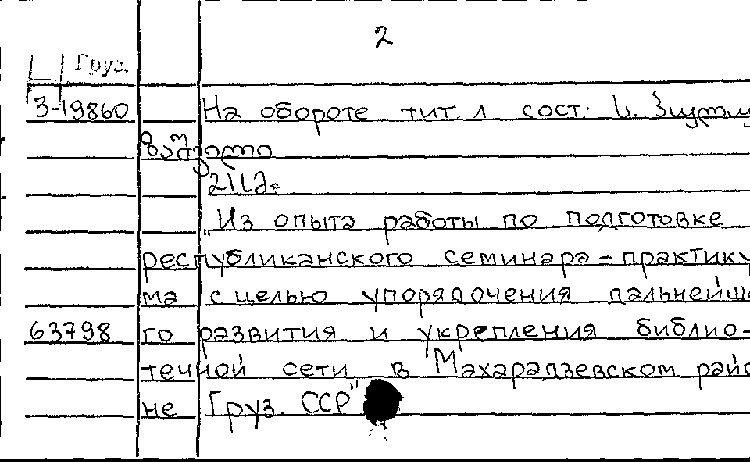 2
Груз.
3-19860 На обороте тит. л сост.
"Из опыта работы по подготовке
республиканского семинара-практику
ма с целью упорядочения дальнейше
63798 го развития и укрепления библио-
течной сети в Махарадзевском райо
не Груз. ССР"